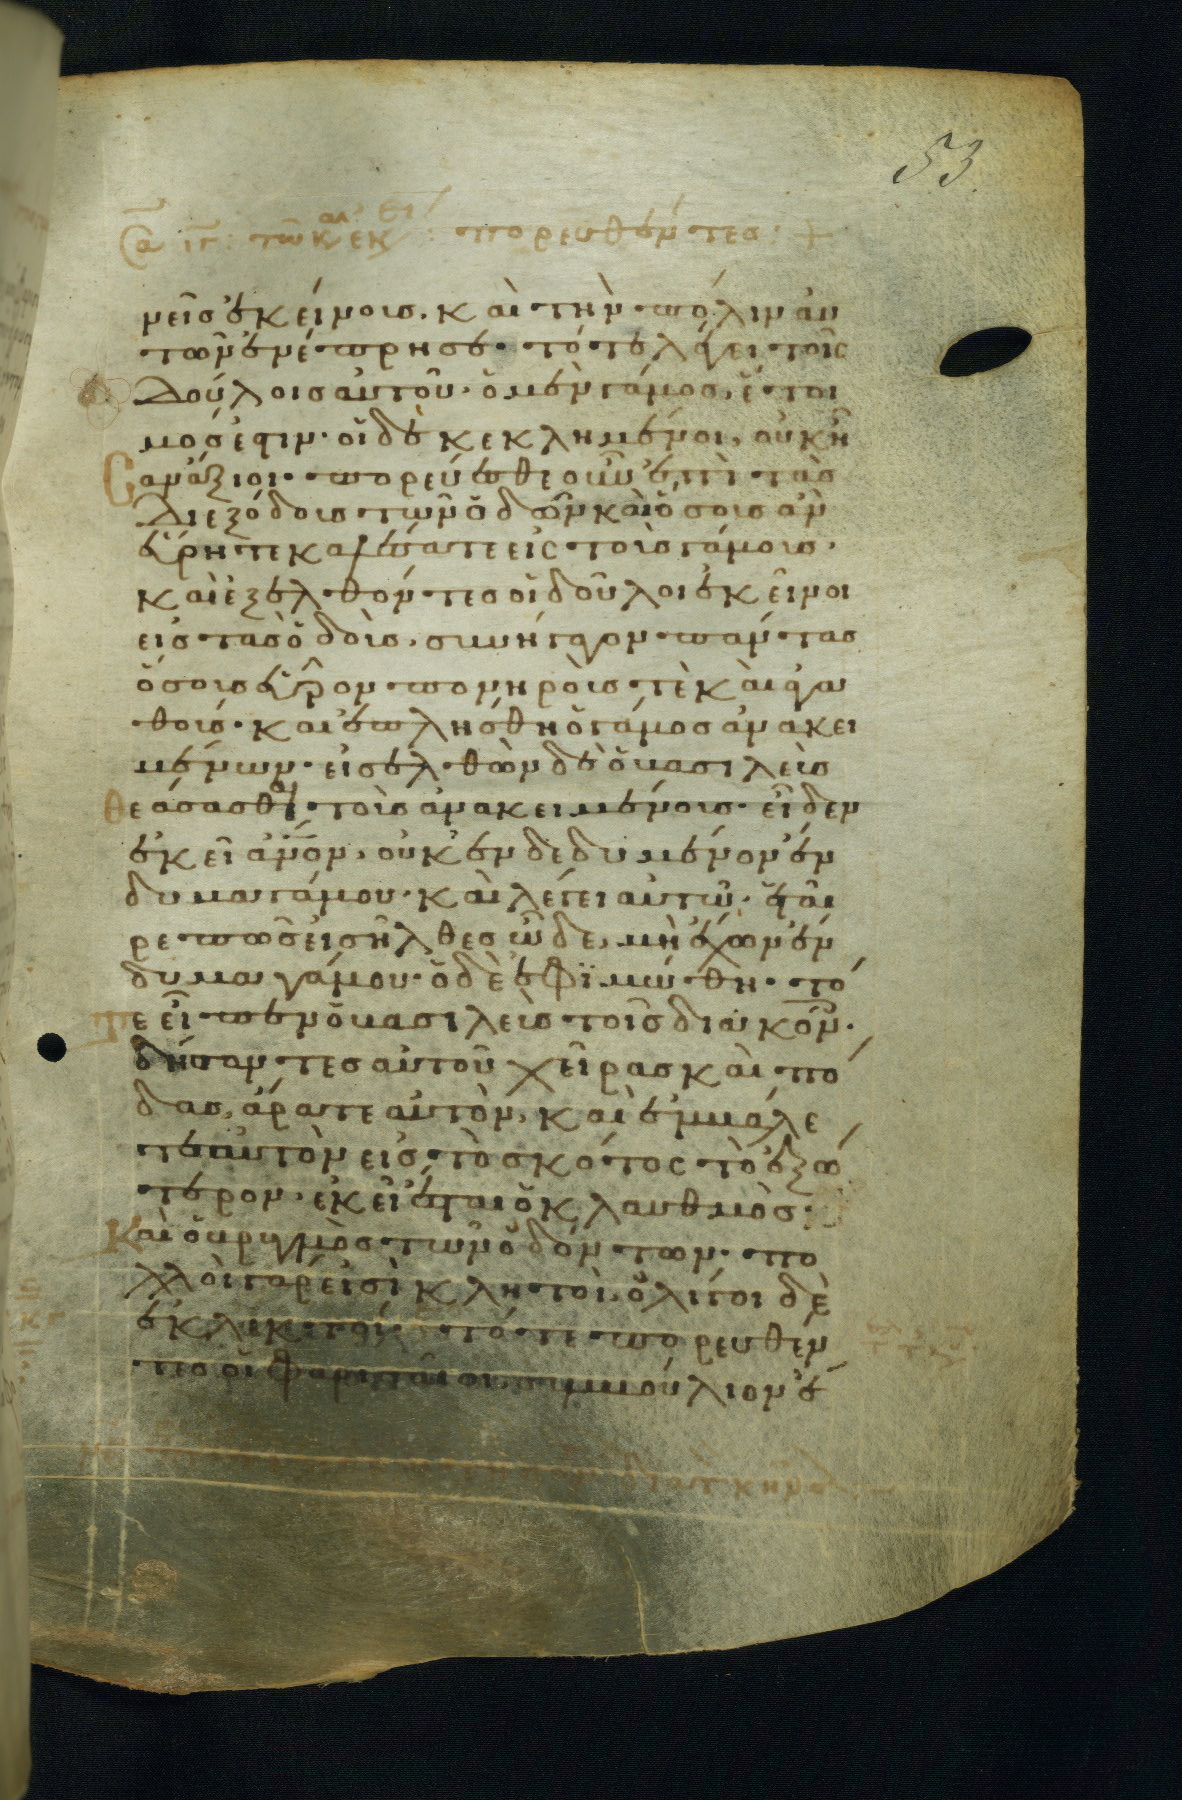 53
πορευθέντες: +
νεῖς ἐκείνους. καὶ τὴν πόλιν αὐ
τῶν ἐνέπρησε. τότε λέγει τοῖς
δούλοις αὐτοῦ. ὁ μὲν γάμος, ἕτοι
μός ἐστιν. οἱ δὲ κεκλημένοι, οὐκ ἦ
σαν ἄξιοι. πορεύεσθε οὖν ἐπὶ τὰς
διεξόδους τῶν ὁδῶν καὶ ὅσους ἂν
εὕρητε καλέσατε εἰς τοὺς γάμους.
καὶ ἐξελθόντες οἱ δοῦλοι ἐκεῖνοι
εἰς τὰς ὁδοὺς, συνήγαγον πάντας
ὅσους εὗρον πονηρούς τὲ καὶ ἀγα
θούς. καὶ ἐπλήσθη ὁ γάμος ἀνακει
μένων. εἰσελθὼν δὲ ὁ βασιλεὺς
θεάσασθαι τοὺς ἀνακειμένους. εἶδεν
ἐκεῖ ἄνον, οὐκ ἐνδεδυμένον ἔν
δυμα γάμου. καὶ λέγει αὐτῷ. ἑταῖ
ρε πῶς εἰσῆλθες ὧδε, μὴ ἔχων ἔν
δυμα γάμου. ὁ δὲ ἐφιμώθη. τό
τε εἶπεν ὁ βασιλεὺς τοῖς διακόν.
δήσαντες αὐτοῦ χεῖρας καὶ πό
δας, ἄρατε αὐτὸν, καὶ ἐμβάλε
τε αὐτὸν εἰς τὸ σκότος τὸ ἐξώ
τερον. ἐκεῖ ἔσται ὁ κλαυθμὸς.
Καὶ ὁ βρυγμὸς τῶν ὀδόντων. πο
λλοὶ γάρ εἰσὶ κλητοὶ, ὀλίγοι δὲ
ἐκλεκτοί τότε πορευθέν
τες οἱ φαρισαῖοι, συμβούλιον ἔ